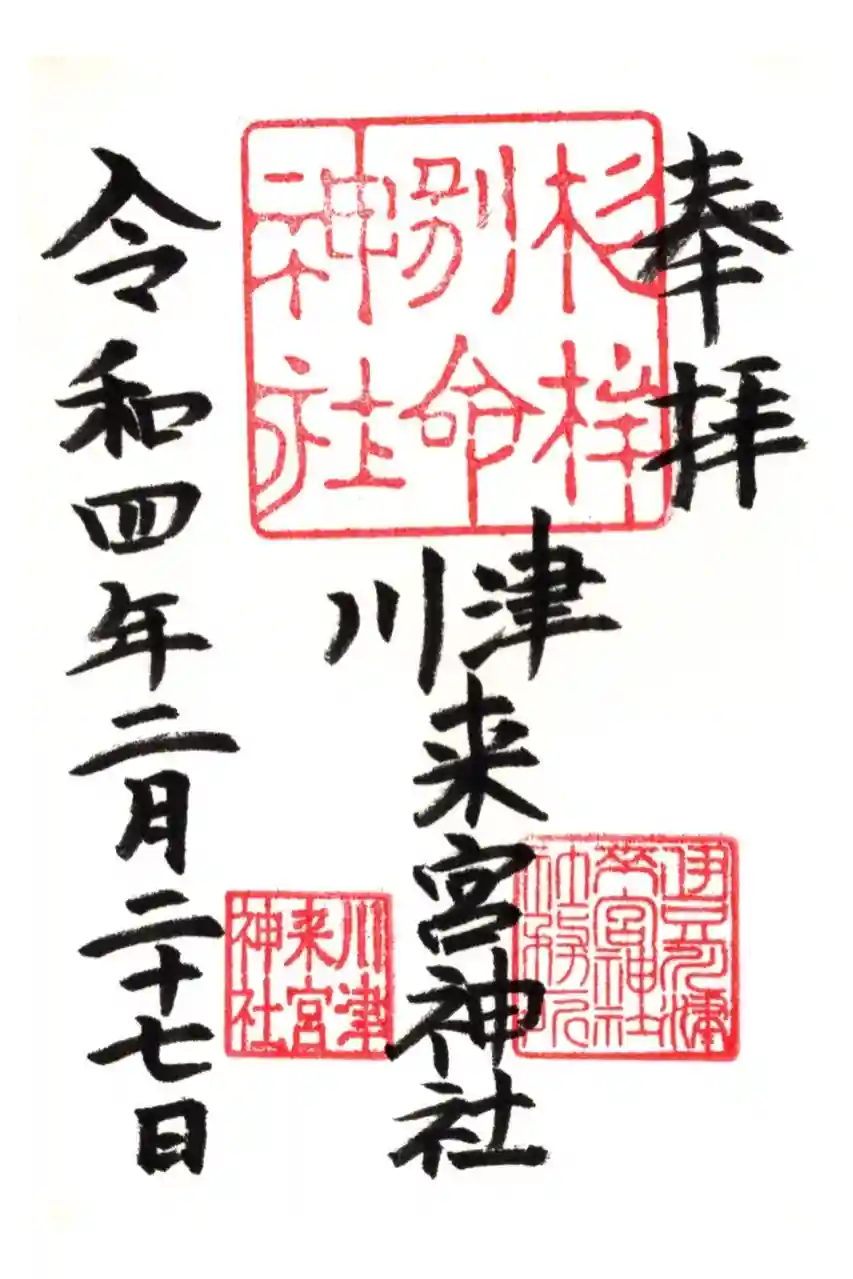 奉拝
杉桙
別命
神社
川津
来宮神社
来宮神社
社務所
川津
来宮
神社
令和四年二月二十七日